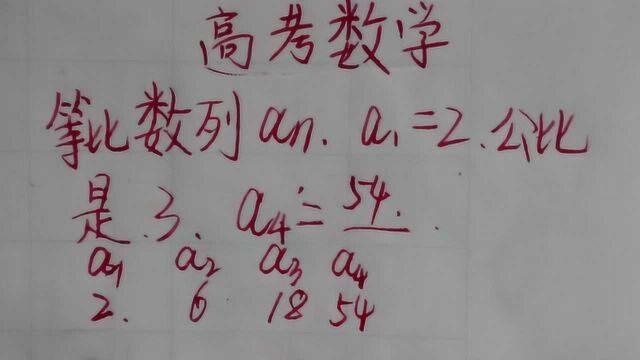 高考数学
等比数列 an. a₁=2.公比
是.3. a₄=54.
a₁ a₂ a₃ a₄
2. 6 18 54